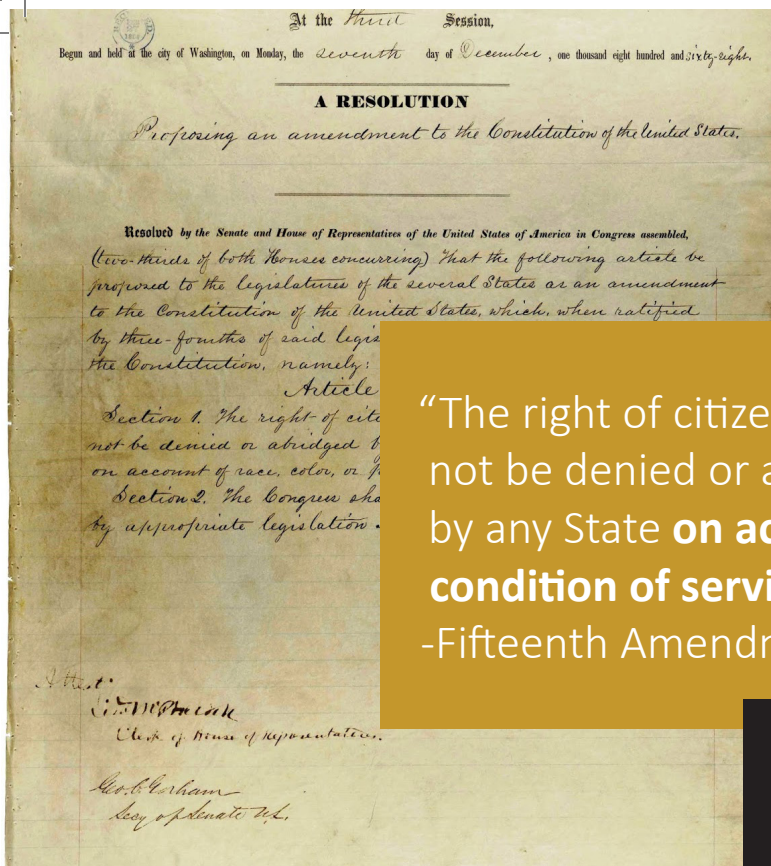 At the third Session,
Begun and held at the city of Washington, on Monday, the seventh day of December, one thousand eight hundred and sixty-eight.
A RESOLUTION
Proposing an amendment to the Constitution of the United States.
Resolved by the Senate and House of Representatives of the United States of America in Congress assembled,
(two-thirds of both Houses concurring) That the following article be
proposed to the legislatures of the several States as an amendment
to the Constitution of the United States, which, when ratified
by three-fourths of said legis
the Constitution, namely:
Article
Section 1. The right of cite
not be denied or abridged b
on account of race, color, or p
Section 2. The Congress sha
by appropriate legislation.
“The right of citize
not be denied or a
by any State on ac
condition of servi
-Fifteenth Amendr
Attest:
Clerk of House of Representatives.
Geo. C. Gorham
Secy of Senate U.S.